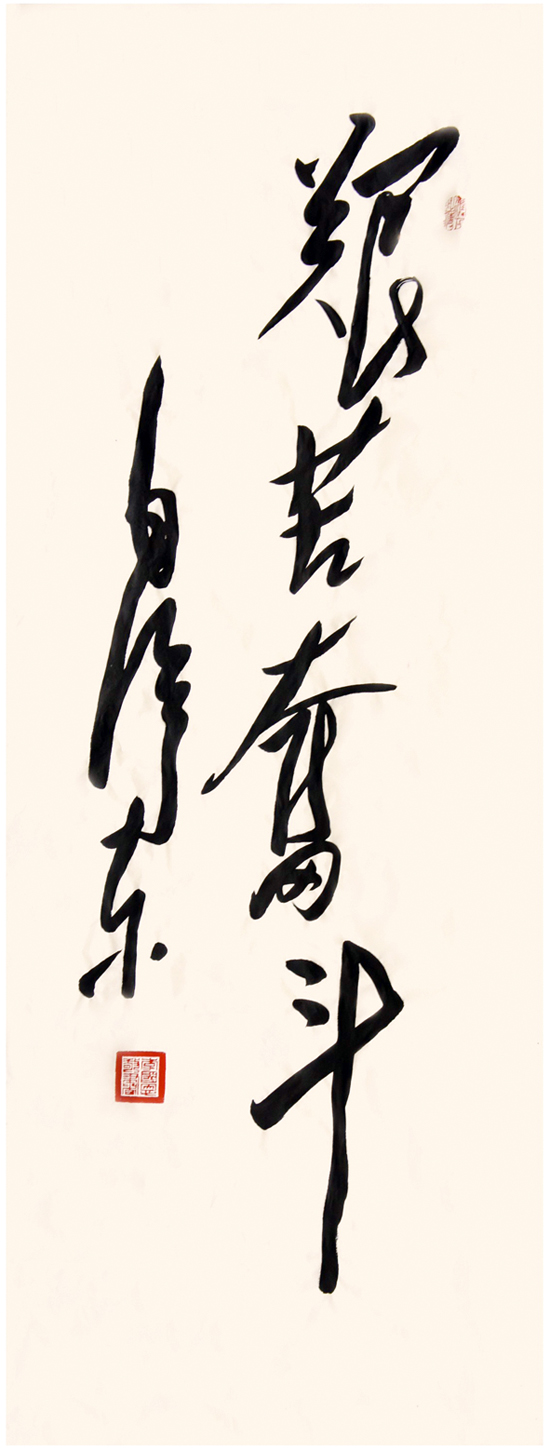 艰苦奋斗
毛泽东